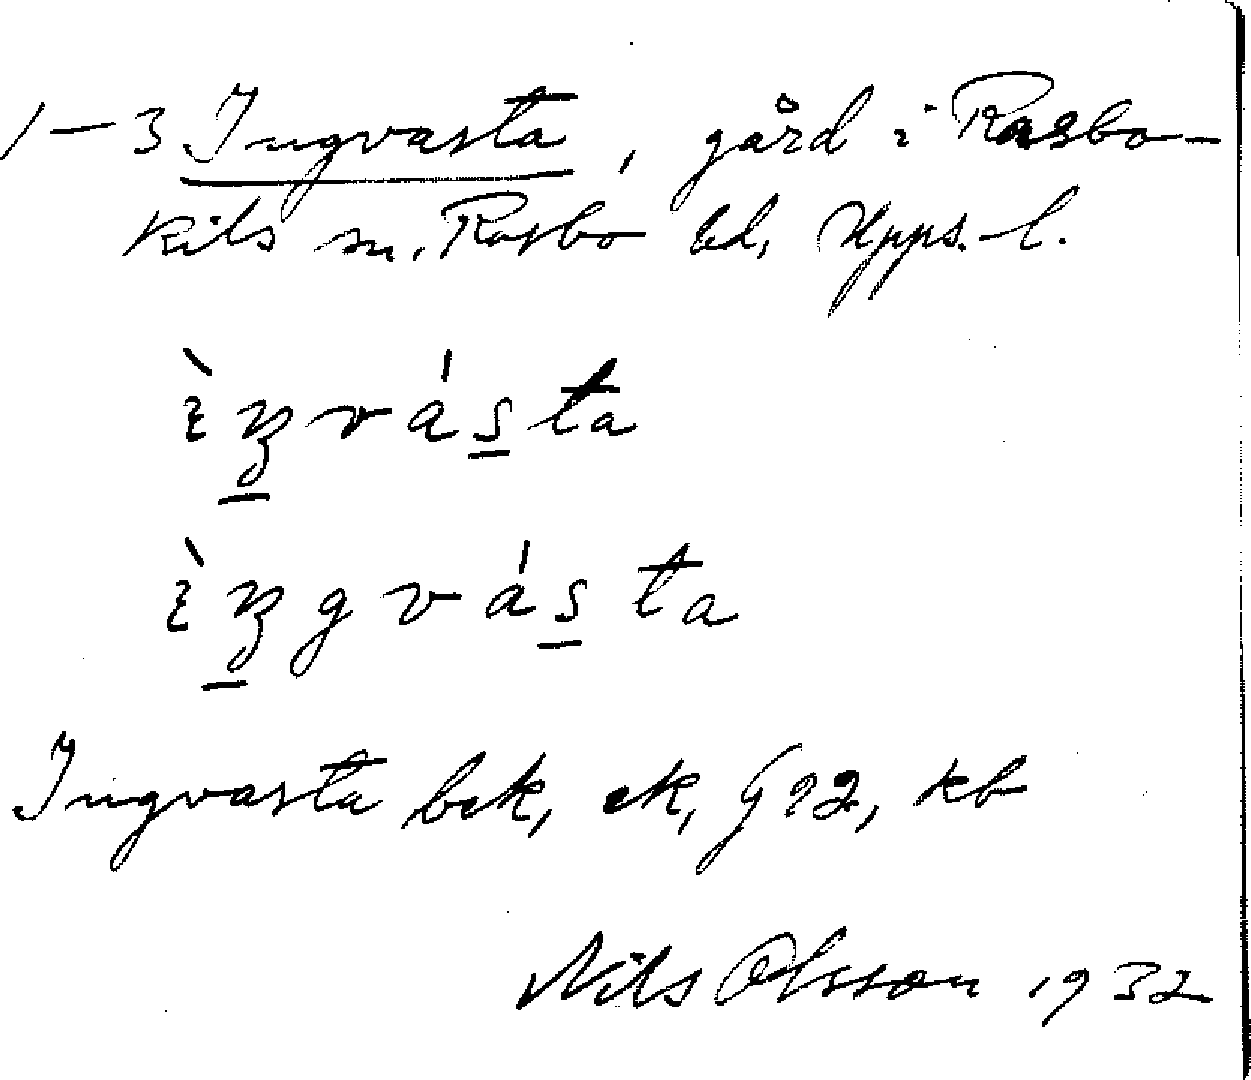 1–3 Ingvasta, gård i Rasbo-
kils sn, Rasbo hd, Upps. l.
ìŋvásta
ìŋgvásta
Ingvasta bek, ek, G 22, kb
Nils Olsson 1932